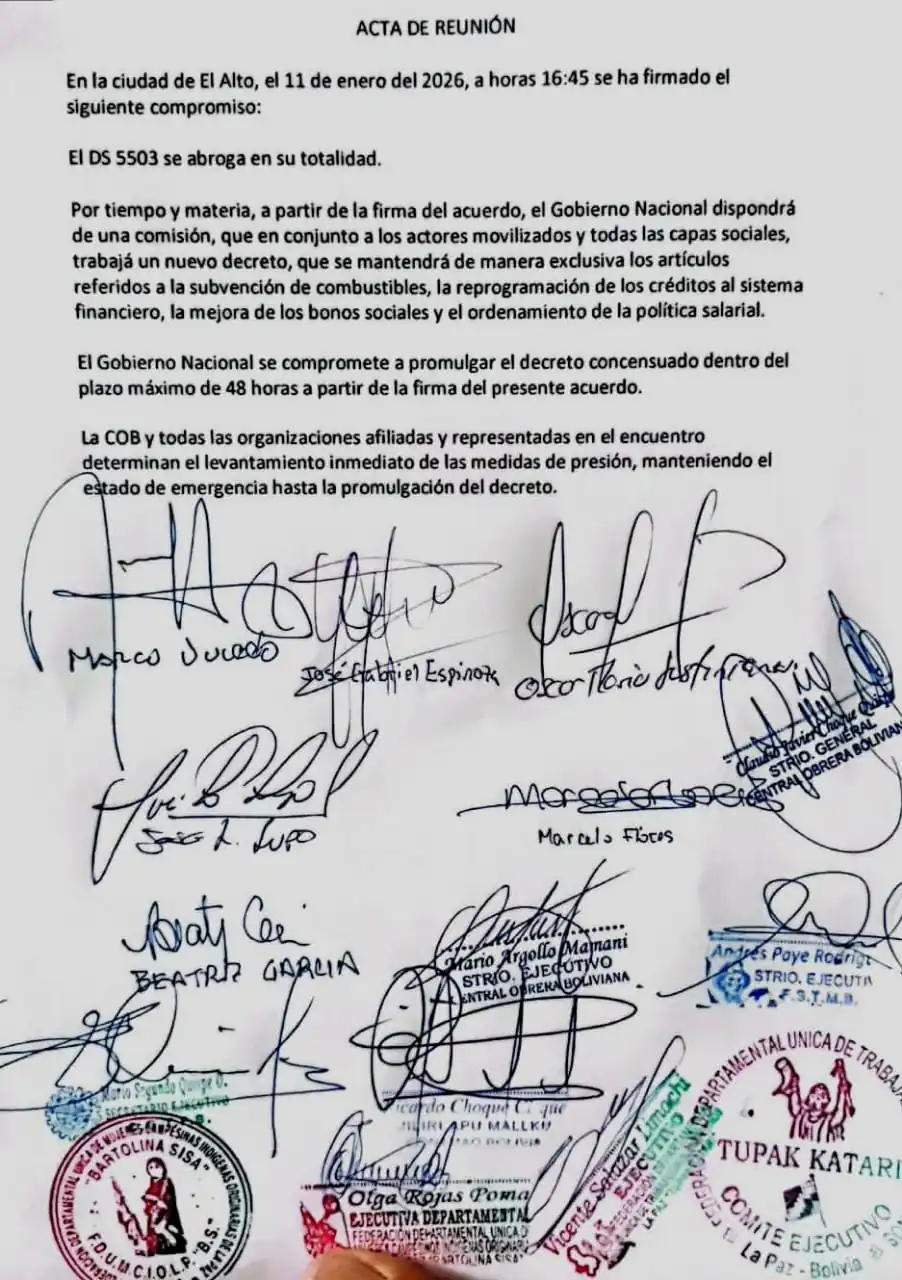 ACTA DE REUNIÓN
En la ciudad de El Alto, el 11 de enero del 2026, a horas 16:45 se ha firmado el
siguiente compromiso:
El DS 5503 se abroga en su totalidad.
Por tiempo y materia, a partir de la firma del acuerdo, el Gobierno Nacional dispondrá
de una comisión, que en conjunto a los actores movilizados y todas las capas sociales,
trabajá un nuevo decreto, que se mantendrá de manera exclusiva los artículos
referidos a la subvención de combustibles, la reprogramación de los créditos al sistema
financiero, la mejora de los bonos sociales y el ordenamiento de la política salarial.
El Gobierno Nacional se compromete a promulgar el decreto concensuado dentro del
plazo máximo de 48 horas a partir de la firma del presente acuerdo.
La COB y todas las organizaciones afiliadas y representadas en el encuentro
determinan el levantamiento inmediato de las medidas de presión, manteniendo el
estado de emergencia hasta la promulgación del decreto.
Marco
José Gabriel Espinoza
Oscar Mario
Claudio Javier Choque
STRIO. GENERAL
CENTRAL OBRERA BOLIVIANA
José L. Lupo
Marcelo Flores
BEATRIZ GARCIA
Mario Argollo Mamani
STRIO. EJECUTIVO
CENTRAL OBRERA BOLIVIANA
Andrés Paye Rodrig
STRIO. EJECUTI
F.S.T.M.B.
Mario Segundo Quispe O.
SECRETARIO EJECUTIVO
Choque
APU MALLKU
Olga Rojas Poma
EJECUTIVA DEPARTAMENTAL
FEDERACION DEPARTAMENTAL UNICA D
BARTOLINA SISA"
Vicente Salazar Limachi
EJECUTIVO
DEPARTAMENTAL UNICA DE MUJERES CAMPESINAS INDIGENAS ORIGINARIAS DE LA PAZ
"BARTOLINA SISA"
F.D.U.M.C.I.O.L.P. "B.S."
DEPARTAMENTAL UNICA DE TRABAJA
TUPAK KATARI
COMITE EJECUTIVO
La Paz - Bolivia